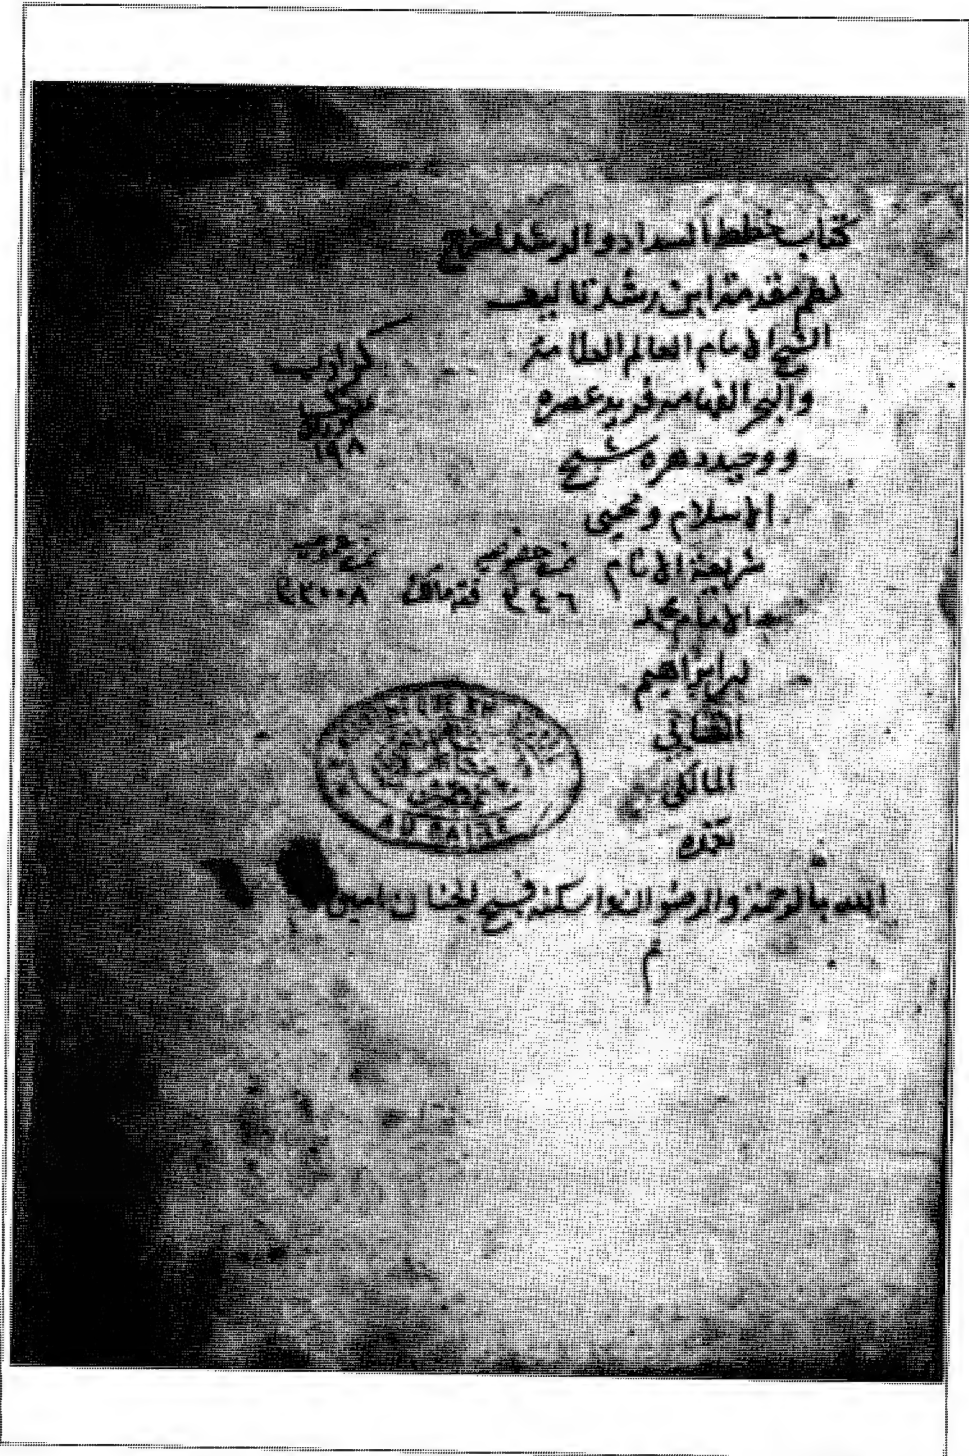 كتاب خطط السداد والرشد لشرح
نظم مقدمة ابن رشد تاليف
الشيخ الامام العالم العلامة
والبحر الفهامه فريد عصره
ووحيد دهره شيخ
الاسلام ومحيى
شريعة الانام
الامام محمد
بن ابراهيم
التتاي
المالكى
تغمده
الله بالرحمة والرضوان واسكنه فسيح الجنان امين
م
١٩٨
نمرة خصوصيه
٢٤٦ فقه مالكى
نمرة عموميه
٢٢٠٠٨
AU CAIRE